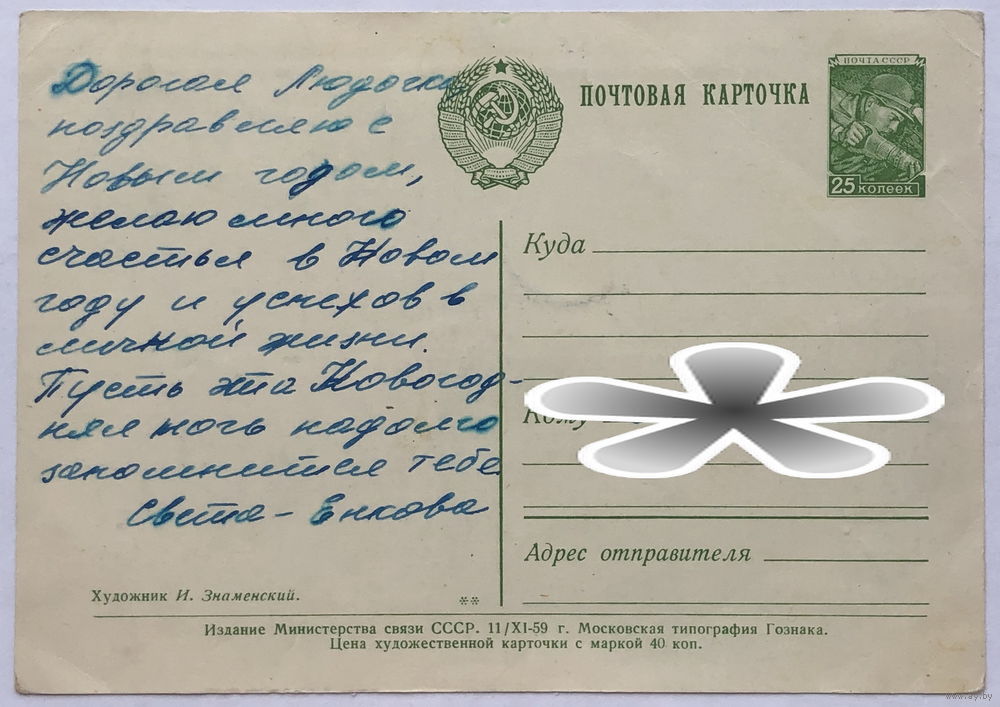 Дорогая Людочка
поздравляю с
Новым годом,
желаю много
счастья в Новом
году и успехов в
личной жизни.
Пусть эта Новогод-
няя ночь надолго
запомнится тебе
Света - Енкова
ПОЧТОВАЯ КАРТОЧКА
ПОЧТА СССР
25 копеек
Куда
Кому
Адрес отправителя
Художник И. Знаменский.
**
Издание Министерства связи СССР. 11/XI-59 г. Московская типография Гознака.
Цена художественной карточки с маркой 40 коп.
www.ay.by